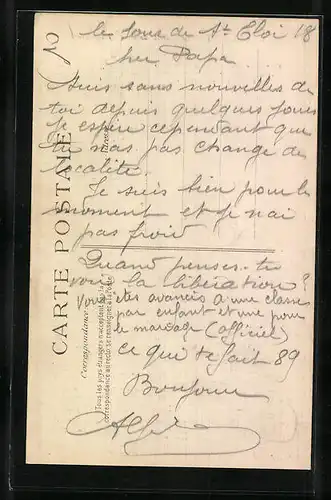 le jour de St Eloi 18
cher Papa
Suis sans nouvelles de
toi depuis quelques jours
J'espère cependant que
tu n'as pas changé de
localité.
Je suis bien pour le
moment et je n'ai
pas froid
Quand penses-tu
voir la libération?
Vous êtes avancés d'une classe
par enfant et une pour
le mariage (officiel)
ce qui te fait 89
Bonjour
CARTE POSTALE
Correspondance
Tous les pays étrangers n'acceptent pas la
correspondance au recto, se renseigner à la Poste